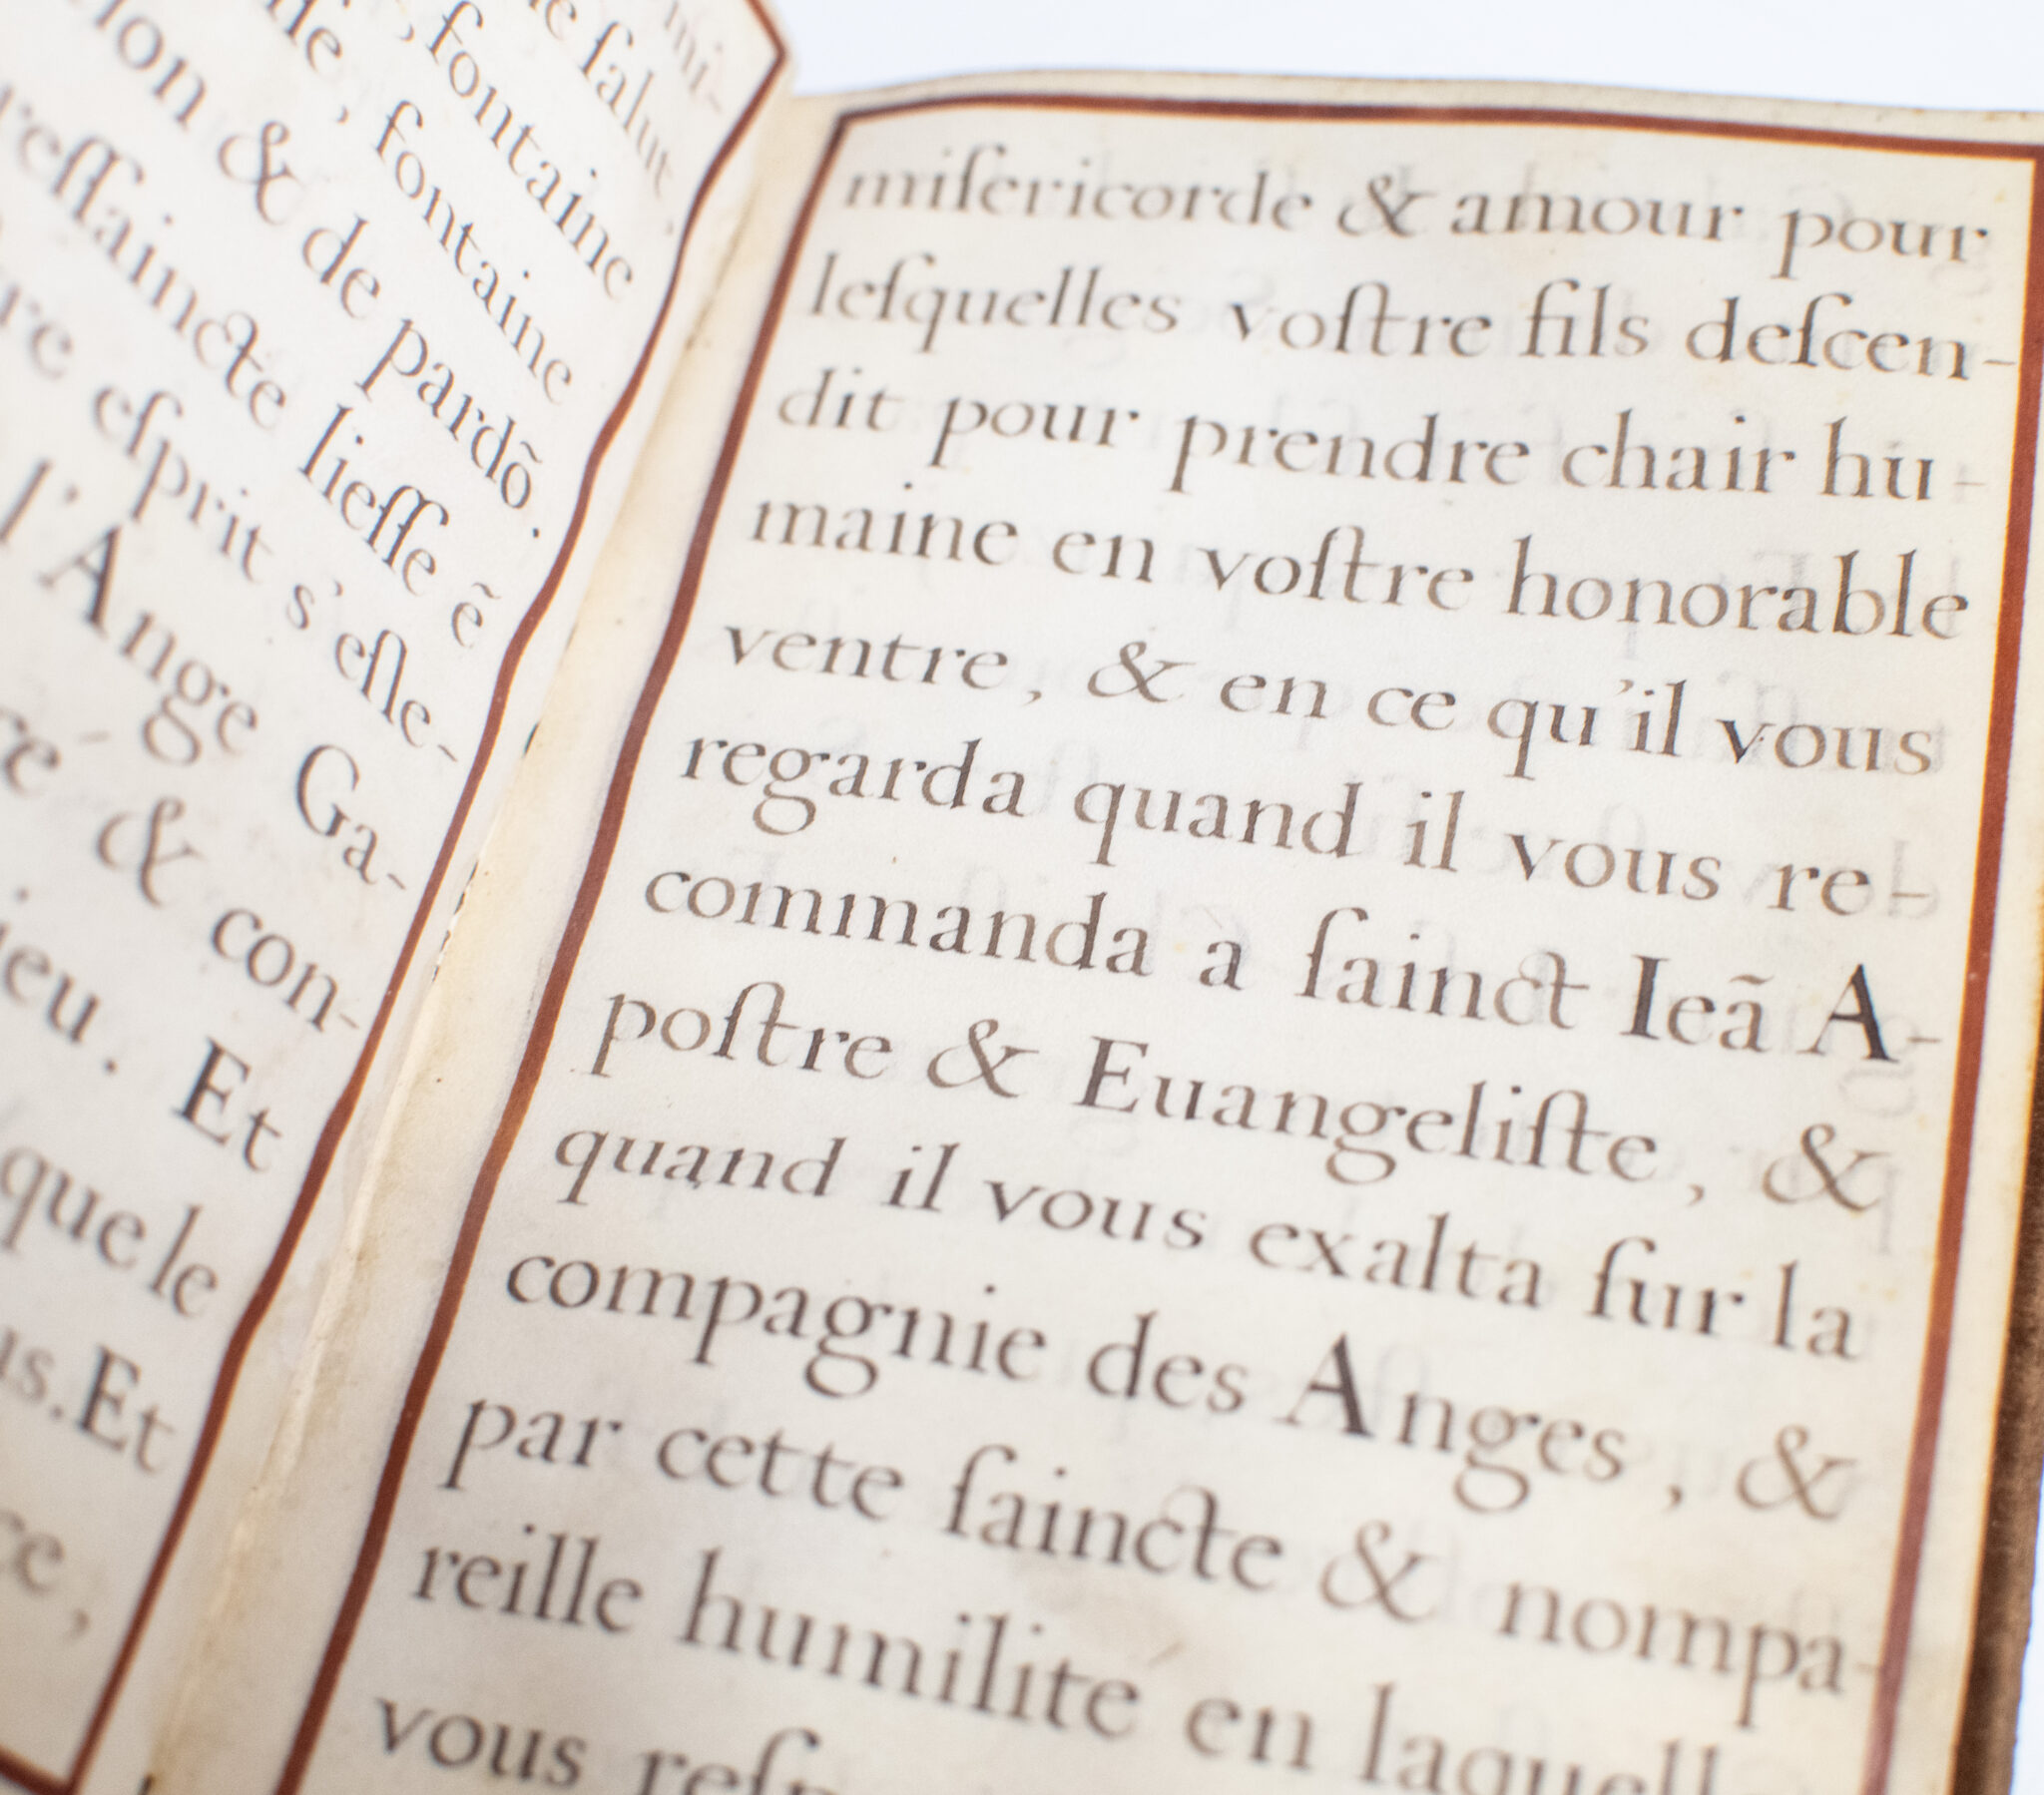 mi-
ſalut,
, fontaine
, fontaine
& de pardõ.
lieſſe ẽ
eſprit s'eſle-
l'Ange Ga-
& con-
. Et
que le
Et
miſericorde & amour pour
leſquelles voſtre fils deſcen-
dit pour prendre chair hu-
maine en voſtre honorable
ventre, & en ce qu'il vous
regarda quand il vous re-
commanda a ſainct Ieã A-
poſtre & Euangeliſte, &
quand il vous exalta ſur la
compagnie des Anges, &
par cette ſaincte & nompa-
reille humilité en laquell
vous